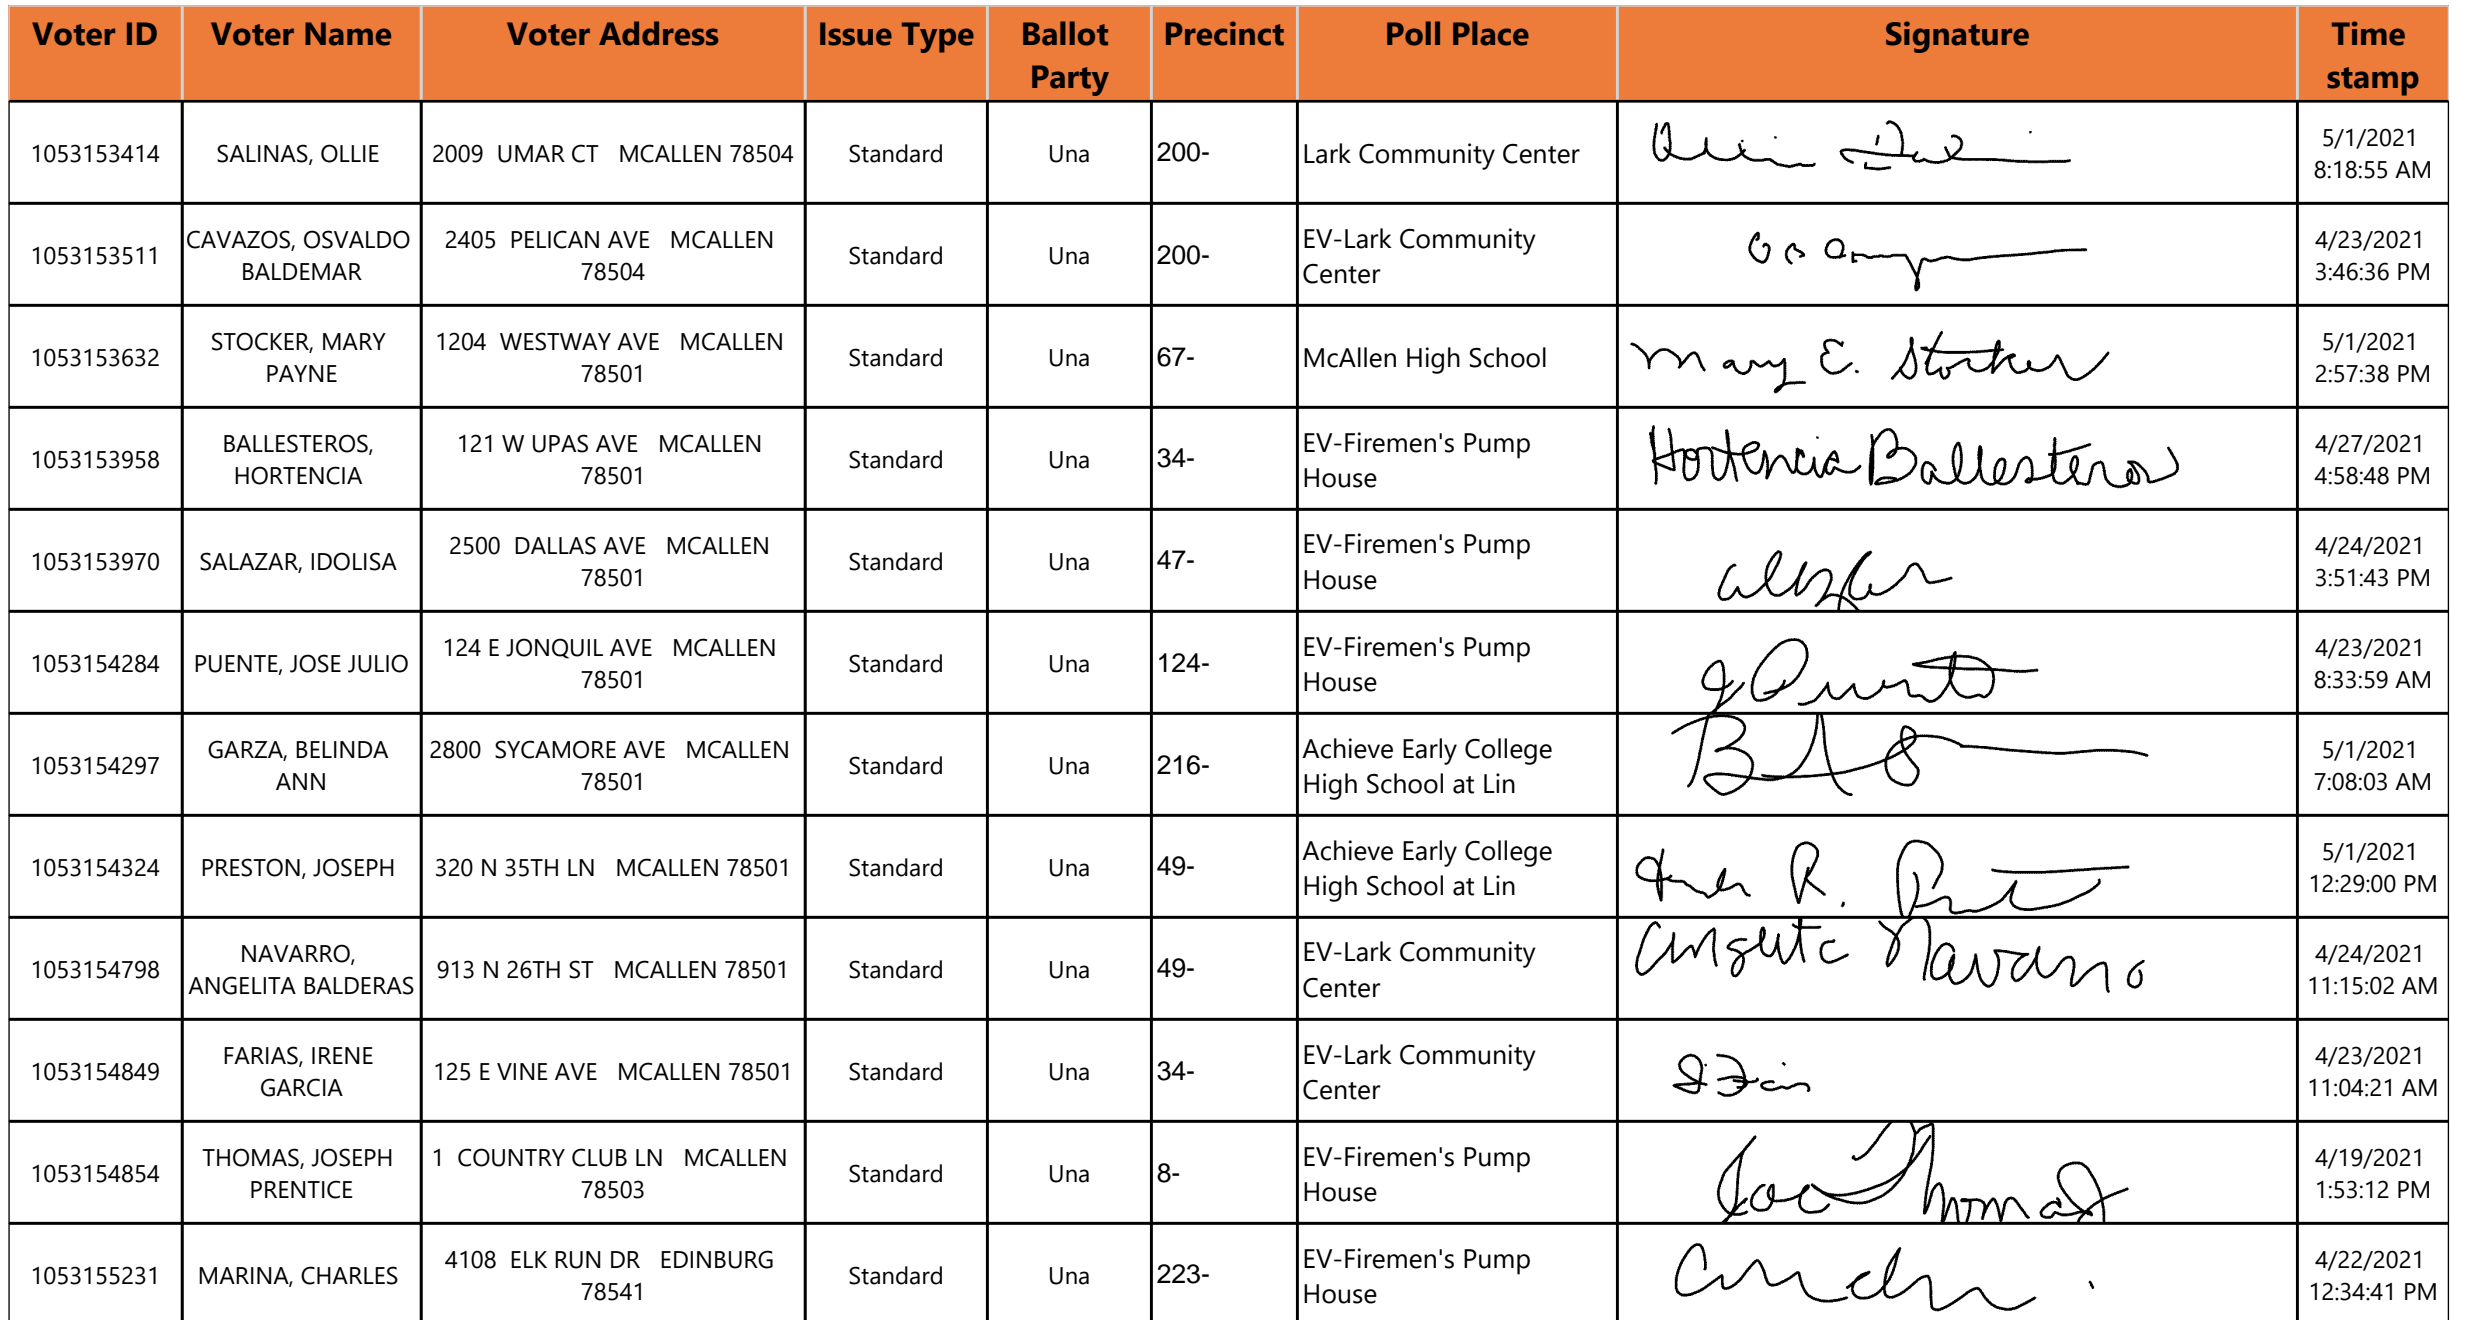 Voter ID Voter Name Voter Address Issue Type Ballot Party Precinct Poll Place Signature Time stamp
1053153414 SALINAS, OLLIE 2009 UMAR CT MCALLEN 78504 Standard Una 200- Lark Community Center 5/1/2021 8:18:55 AM
1053153511 CAVAZOS, OSVALDO BALDEMAR 2405 PELICAN AVE MCALLEN 78504 Standard Una 200- EV-Lark Community Center 4/23/2021 3:46:36 PM
1053153632 STOCKER, MARY PAYNE 1204 WESTWAY AVE MCALLEN 78501 Standard Una 67- McAllen High School Mary E. Stocker 5/1/2021 2:57:38 PM
1053153958 BALLESTEROS, HORTENCIA 121 W UPAS AVE MCALLEN 78501 Standard Una 34- EV-Firemen's Pump House Hortencia Ballesteros 4/27/2021 4:58:48 PM
1053153970 SALAZAR, IDOLISA 2500 DALLAS AVE MCALLEN 78501 Standard Una 47- EV-Firemen's Pump House 4/24/2021 3:51:43 PM
1053154284 PUENTE, JOSE JULIO 124 E JONQUIL AVE MCALLEN 78501 Standard Una 124- EV-Firemen's Pump House J Puente 4/23/2021 8:33:59 AM
1053154297 GARZA, BELINDA ANN 2800 SYCAMORE AVE MCALLEN 78501 Standard Una 216- Achieve Early College High School at Lin 5/1/2021 7:08:03 AM
1053154324 PRESTON, JOSEPH 320 N 35TH LN MCALLEN 78501 Standard Una 49- Achieve Early College High School at Lin Joseph R. Preston 5/1/2021 12:29:00 PM
1053154798 NAVARRO, ANGELITA BALDERAS 913 N 26TH ST MCALLEN 78501 Standard Una 49- EV-Lark Community Center Angelita Navarro 4/24/2021 11:15:02 AM
1053154849 FARIAS, IRENE GARCIA 125 E VINE AVE MCALLEN 78501 Standard Una 34- EV-Lark Community Center 4/23/2021 11:04:21 AM
1053154854 THOMAS, JOSEPH PRENTICE 1 COUNTRY CLUB LN MCALLEN 78503 Standard Una 8- EV-Firemen's Pump House Joe Thomas 4/19/2021 1:53:12 PM
1053155231 MARINA, CHARLES 4108 ELK RUN DR EDINBURG 78541 Standard Una 223- EV-Firemen's Pump House 4/22/2021 12:34:41 PM